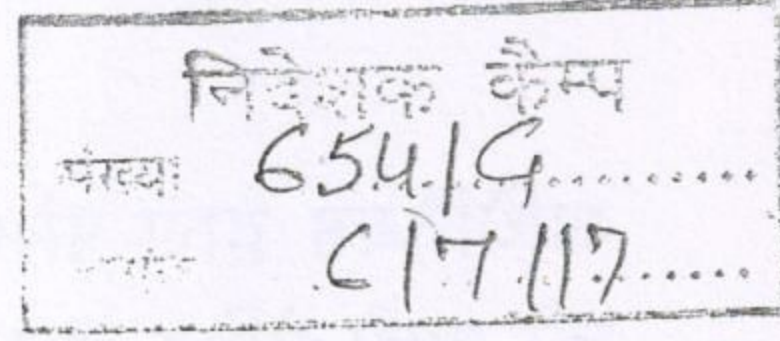 निदेशक कैम्प
संख्या 654/G
6/7/17